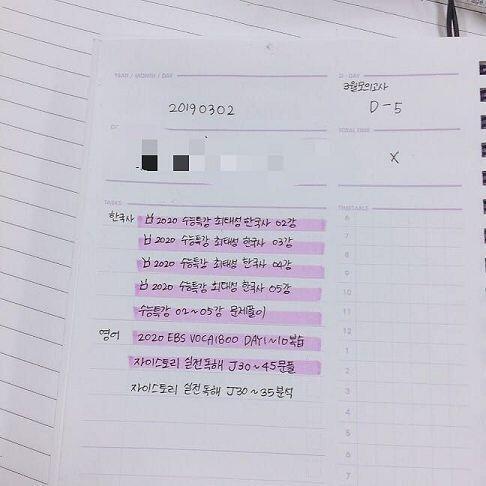 YEAR / MONTH / DAY
D-DAY
3월모의고사
20190302
D-5
TOTAL TIME
X
TASKS
TIMETABLE
한국사 2020 수능특강 최태성 한국사 02강
2020 수능특강 최태성 한국사 03강
2020 수능특강 최태성 한국사 04강
2020 수능특강 최태성 한국사 05강
수능특강 02~05강 문제풀이
영어 2020 EBS VOCA1800 DAY1~10복습
자이스토리 실전독해 J30~45문풀
자이스토리 실전독해 J30~35분석
6
7
8
9
10
11
12
1
2
3
4
5
6
7